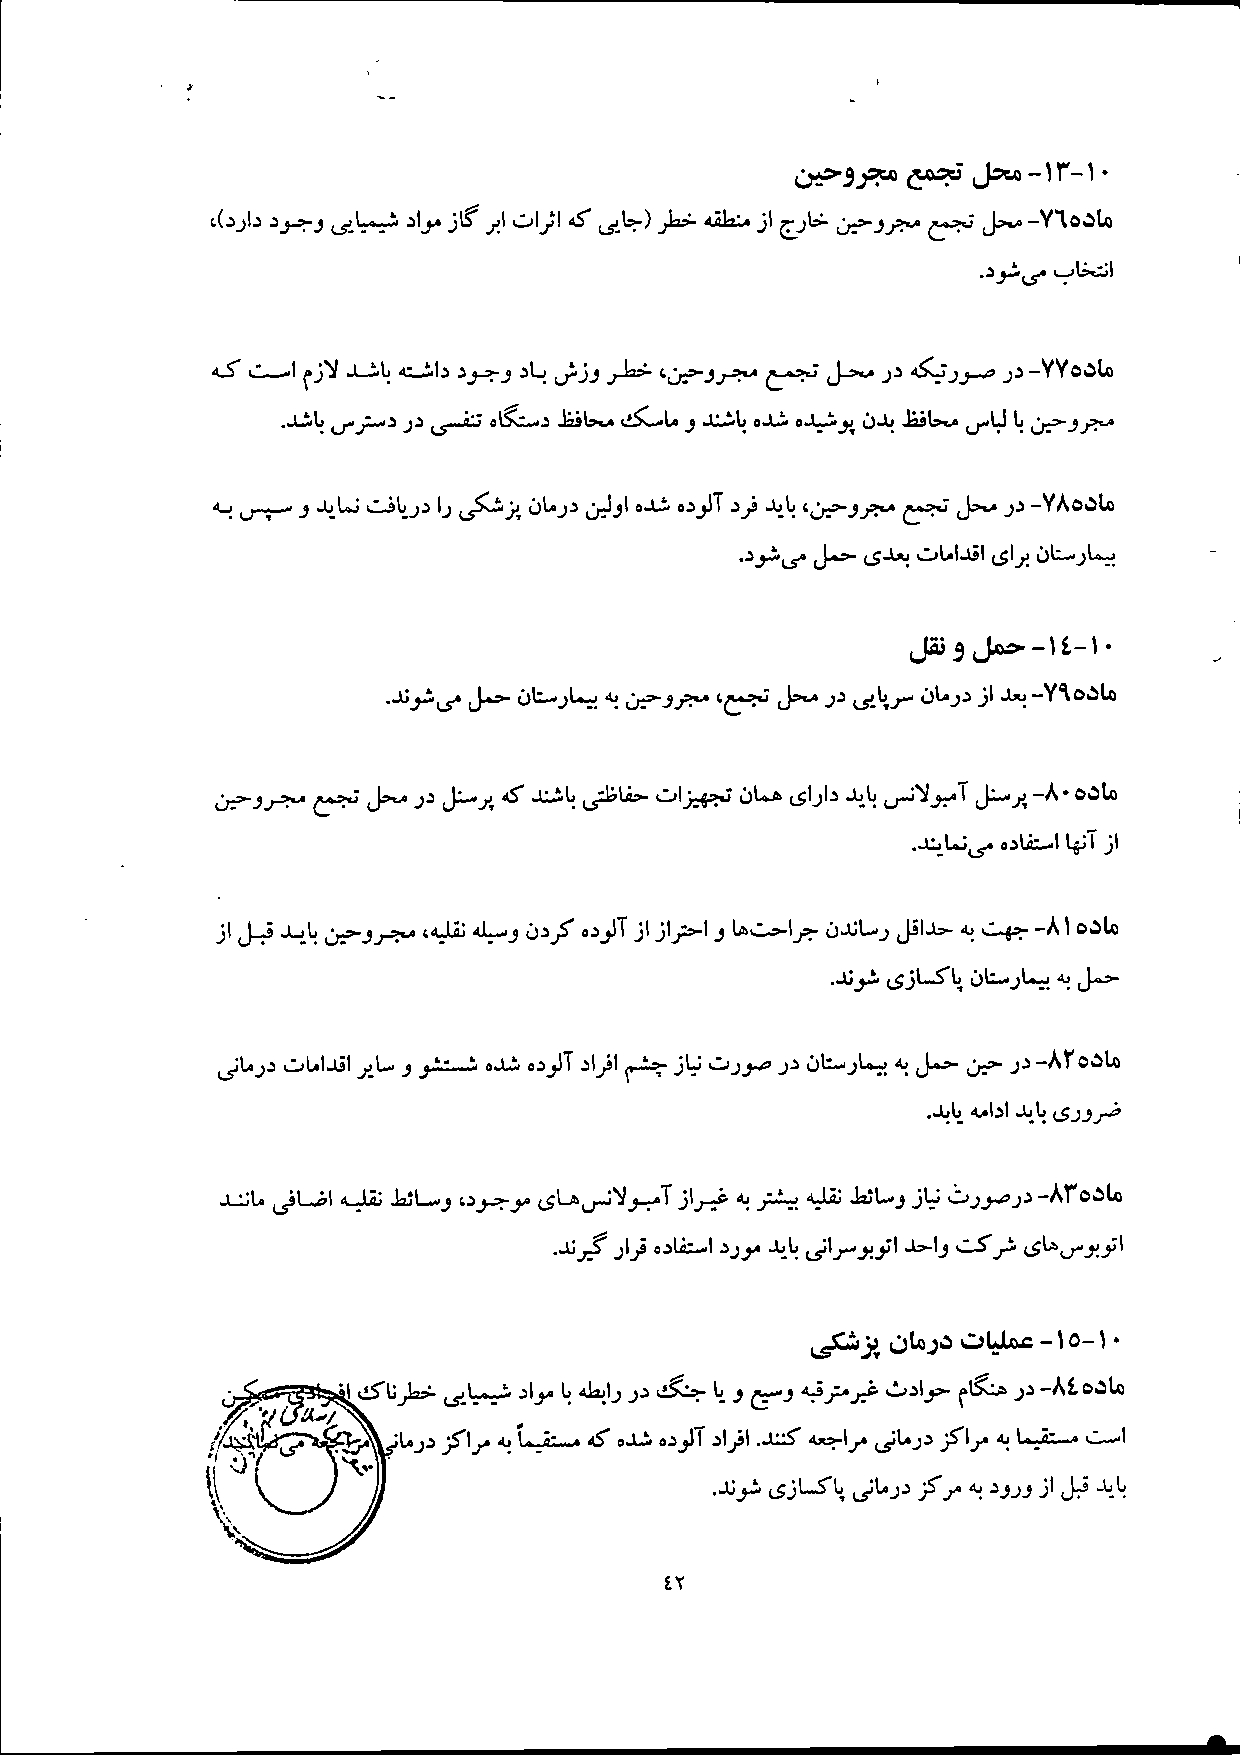 ۱۰-۱۳- محل تجمع مجروحین
ماده۷٦- محل تجمع مجروحین خارج از منطقه خطر (جایی که اثرات ابر گاز مواد شیمیایی وجود دارد)،
انتخاب می‌شود.
ماده۷۷- در صورتیکه در محل تجمع مجروحین، خطر وزش باد وجود داشته باشد لازم است که
مجروحین با لباس محافظ بدن پوشیده شده باشند و ماسک محافظ دستگاه تنفسی در دسترس باشد.
ماده۷۸- در محل تجمع مجروحین، باید فرد آلوده شده اولین درمان پزشکی را دریافت نماید و سپس به
بیمارستان برای اقدامات بعدی حمل می‌شود.
۱۰-۱٤- حمل و نقل
ماده۷۹- بعد از درمان سرپایی در محل تجمع، مجروحین به بیمارستان حمل می‌شوند.
ماده۸۰- پرسنل آمبولانس باید دارای همان تجهیزات حفاظتی باشند که پرسنل در محل تجمع مجروحین
از آنها استفاده می‌نمایند.
ماده۸۱- جهت به حداقل رساندن جراحت‌ها و احتراز از آلوده کردن وسیله نقلیه، مجروحین باید قبل از
حمل به بیمارستان پاکسازی شوند.
ماده۸۲- در حین حمل به بیمارستان در صورت نیاز چشم افراد آلوده شده شستشو و سایر اقدامات درمانی
ضروری باید ادامه یابد.
ماده۸۳- درصورت نیاز وسائط نقلیه بیشتر به غیراز آمبولانس‌های موجود، وسائط نقلیه اضافی مانند
اتوبوس‌های شرکت واحد اتوبوسرانی باید مورد استفاده قرار گیرند.
۱۰-۱۵- عملیات درمان پزشکی
ماده۸٤- در هنگام حوادث غیرمترقبه وسیع و یا جنگ در رابطه با مواد شیمیایی خطرناک افرادی ممکن
است مستقیما به مراکز درمانی مراجعه کنند. افراد آلوده شده که مستقیماً به مراکز درمانی مراجعه می‌نمایند
باید قبل از ورود به مرکز درمانی پاکسازی شوند.
٤۲